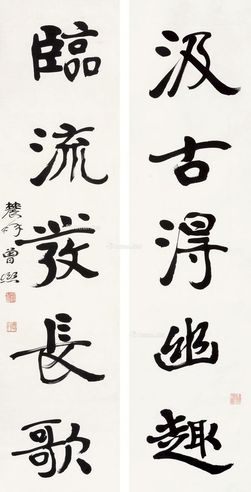 汲古得幽趣
臨流發長歌
農髯曾熙